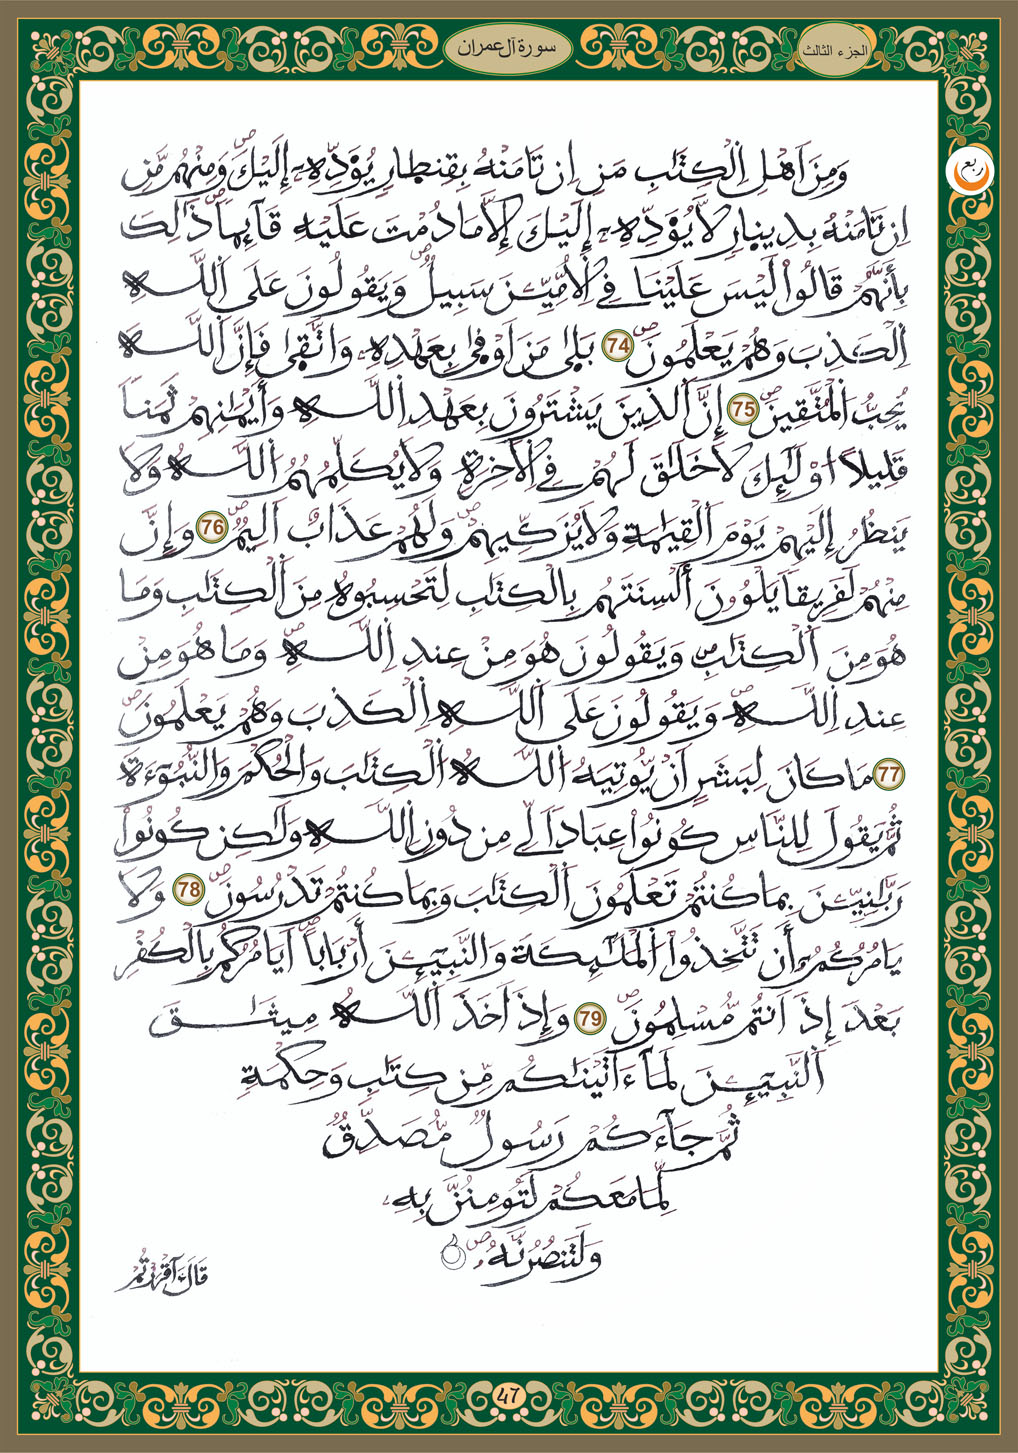 الجزء الثالث
سورة آل عمران
ربع
وَمِنَ اَهْلِ اِ۬لْكِتَٰبِ مَنِ اِن تَامَنْهُ بِقِنط۪ارٖ يُؤَدِّهِۦٓ إِلَيْكَۖ وَمِنْهُم مَّنِ
اِن تَامَنْهُ بِدِين۪ارٖ لَّا يُؤَدِّهِۦٓ إِلَيْكَ إِلَّا مَا دُمْتَ عَلَيْهِ قَآئِماٗۖ ذَٰلِكَ
بِأَنَّهُمْ قَالُواْ لَيْسَ عَلَيْنَا فِے اِ۬لُامِّيِّـۧنَ سَبِيلٞۖ وَيَقُولُونَ عَلَى اَ۬للَّهِ
اِ۬لْكَذِبَ وَهُمْ يَعْلَمُونَۖ 74 بَل۪ىٰ مَنَ اَوْف۪ىٰ بِعَهْدِهِۦ وَاتَّق۪ىٰ فَإِنَّ اَ۬للَّهَ
يُحِبُّ اُ۬لْمُتَّقِينَۖ 75 إِنَّ اَ۬لذِينَ يَشْتَرُونَ بِعَهْدِ اِ۬للَّهِ وَأَيْمَٰنِهِمْ ثَمَناٗ
قَلِيلاً اُوْلَٰٓئِكَ لَا خَلَٰقَ لَهُمْ فِے اِ۬لَاخِرَةِ وَلَا يُكَلِّمُهُمُ اُ۬للَّهُ وَلَا
يَنظُرُ إِلَيْهِمْ يَوْمَ اَ۬لْقِيَٰمَةِ وَلَا يُزَكِّيهِمْۖ وَلَهُمْ عَذَابٌ اَلِيمٞۖ 76 وَإِنَّ
مِنْهُمْ لَفَرِيقاٗ يَلْوُۥنَ أَلْسِنَتَهُم بِالْكِتَٰبِ لِتَحْسِبُوهُ مِنَ اَ۬لْكِتَٰبِ وَمَا
هُوَ مِنَ اَ۬لْكِتَٰبِۖ وَيَقُولُونَ هُوَ مِنْ عِندِ اِ۬للَّهِۖ وَمَا هُوَ مِنْ
عِندِ اِ۬للَّهِۖ وَيَقُولُونَ عَلَى اَ۬للَّهِ اِ۬لْكَذِبَ وَهُمْ يَعْلَمُونَۖ
77 مَا كَانَ لِبَشَرٍ اَنْ يُّوتِيَهُ اُ۬للَّهُ اُ۬لْكِتَٰبَ وَالْحُكْمَ وَالنُّبُوٓءَةَ
ثُمَّ يَقُولَ لِلنَّاسِ كُونُواْ عِبَاداٗ لِّے مِن دُونِ اِ۬للَّهِ وَلَٰكِن كُونُواْ
رَبَّٰنِيِّـۧنَ بِمَا كُنتُمْ تَعْلَمُونَ اَ۬لْكِتَٰبَ وَبِمَا كُنتُمْ تَدْرُسُونَۖ 78 وَلَا
يَامُرُكُمُۥٓ أَن تَتَّخِذُواْ اُ۬لْمَلَٰٓئِكَةَ وَالنَّبِيٓـِٕۧنَ أَرْبَاباًۖ اَيَامُرُكُم بِالْكُفْرِ
بَعْدَ إِذَ اَنتُم مُّسْلِمُونَۖ 79 وَإِذَ اَخَذَ اَ۬للَّهُ مِيثَٰقَ
اَ۬لنَّبِيٓـِٕۧنَ لَمَآ ءَاتَيْنَٰكُم مِّن كِتَٰبٖ وَحِكْمَةٖ
ثُمَّ جَآءَكُمْ رَسُولٞ مُّصَدِّقٞ
لِّمَا مَعَكُمْ لَتُومِنُنَّ بِهِۦ
وَلَتَنصُرُنَّهُۥۖ
قَالَ ءَآقْرَرْتُمْ
47